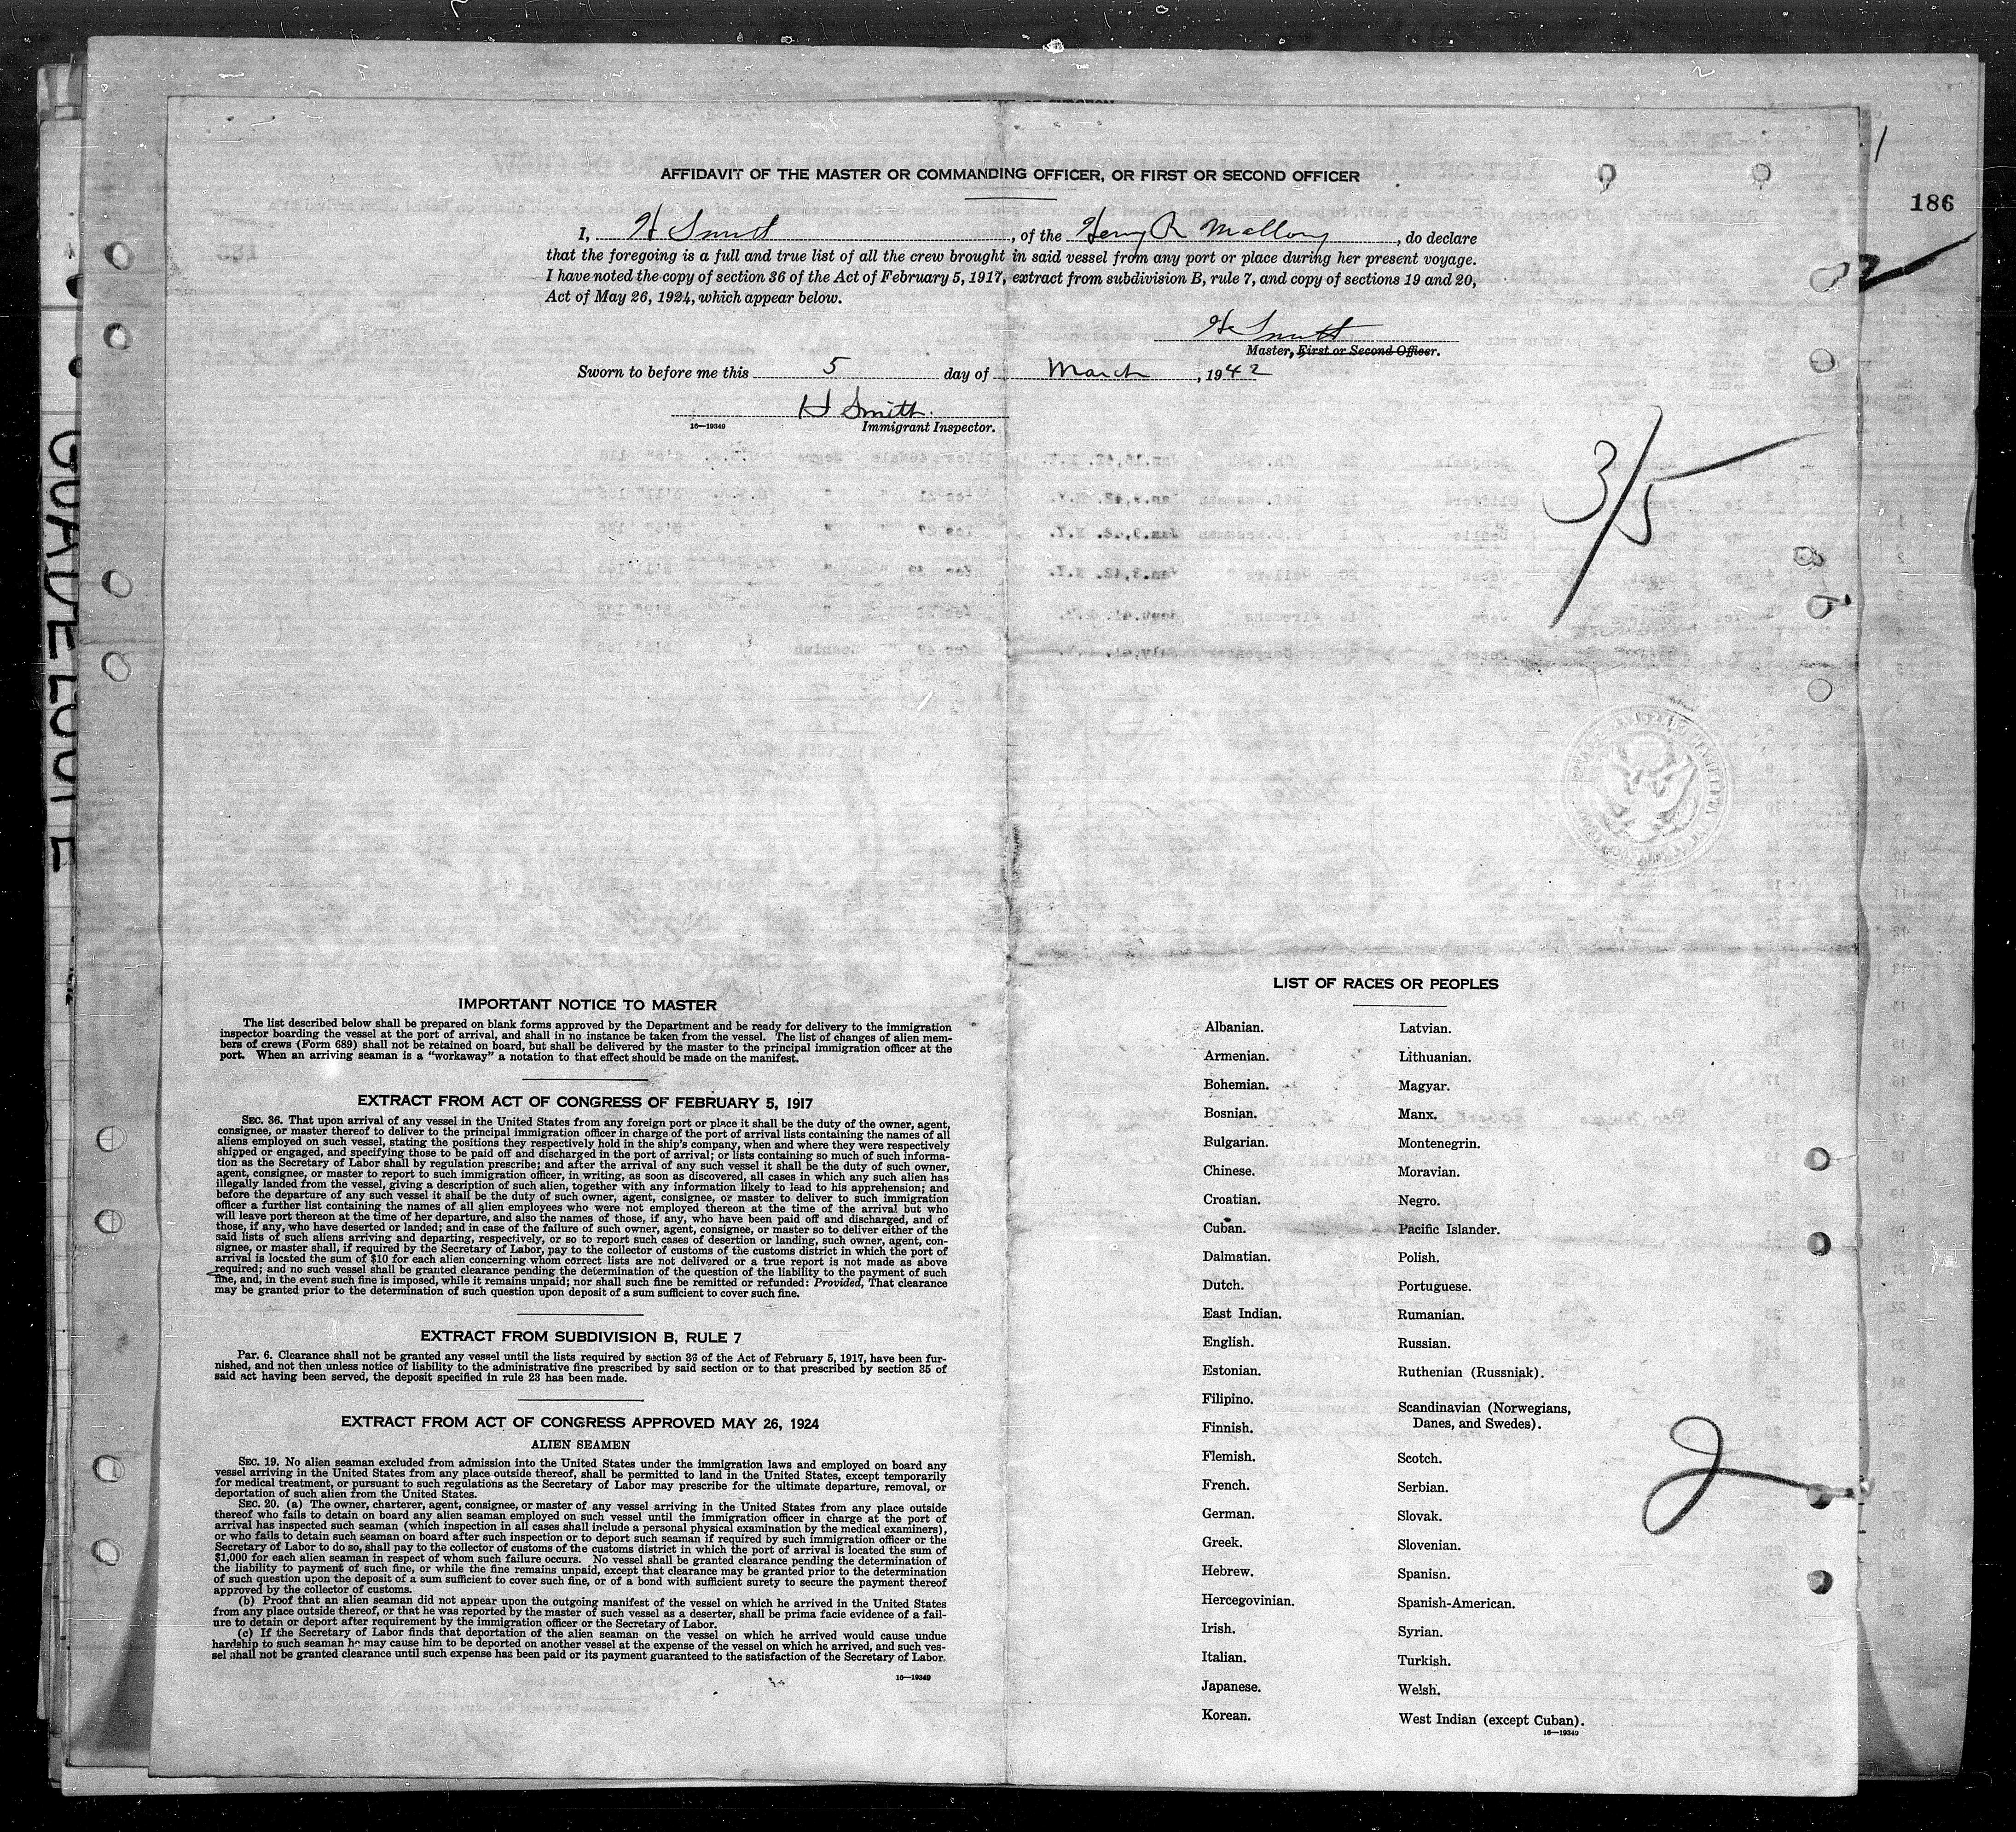 186
AFFIDAVIT OF THE MASTER OR COMMANDING OFFICER, OR FIRST OR SECOND OFFICER
I, H Smith, of the Henry R Mallory, do declare
that the foregoing is a full and true list of all the crew brought in said vessel from any port or place during her present voyage.
I have noted the copy of section 36 of the Act of February 5, 1917, extract from subdivision B, rule 7, and copy of sections 19 and 20,
Act of May 26, 1924, which appear below.
H Smith
Master, First or Second Officer.
Sworn to before me this 5 day of March, 1942
H Smith.
16—19349 Immigrant Inspector.
3/5
GUADELOUPE
IMPORTANT NOTICE TO MASTER
The list described below shall be prepared on blank forms approved by the Department and be ready for delivery to the immigration
inspector boarding the vessel at the port of arrival, and shall in no instance be taken from the vessel. The list of changes of alien mem-
bers of crews (Form 689) shall not be retained on board, but shall be delivered by the master to the principal immigration officer at the
port. When an arriving seaman is a "workaway" a notation to that effect should be made on the manifest.
EXTRACT FROM ACT OF CONGRESS OF FEBRUARY 5, 1917
SEC. 36. That upon arrival of any vessel in the United States from any foreign port or place it shall be the duty of the owner, agent,
consignee, or master thereof to deliver to the principal immigration officer in charge of the port of arrival lists containing the names of all
aliens employed on such vessel, stating the positions they respectively hold in the ship's company, when and where they were respectively
shipped or engaged, and specifying those to be paid off and discharged in the port of arrival; or lists containing so much of such informa-
tion as the Secretary of Labor shall by regulation prescribe; and after the arrival of any such vessel it shall be the duty of such owner,
agent, consignee, or master to report to such immigration officer, in writing, as soon as discovered, all cases in which any such alien has
illegally landed from the vessel, giving a description of such alien, together with any information likely to lead to his apprehension; and
before the departure of any such vessel it shall be the duty of such owner, agent, consignee, or master to deliver to such immigration
officer a further list containing the names of all alien employees who were not employed thereon at the time of the arrival but who
will leave port thereon at the time of her departure, and also the names of those, if any, who have been paid off and discharged, and of
those, if any, who have deserted or landed; and in case of the failure of such owner, agent, consignee, or master so to deliver either of the
said lists of such aliens arriving and departing, respectively, or so to report such cases of desertion or landing, such owner, agent, con-
signee, or master shall, if required by the Secretary of Labor, pay to the collector of customs of the customs district in which the port of
arrival is located the sum of $10 for each alien concerning whom correct lists are not delivered or a true report is not made as above
required; and no such vessel shall be granted clearance pending the determination of the question of the liability to the payment of such
fine, and, in the event such fine is imposed, while it remains unpaid; nor shall such fine be remitted or refunded: Provided, That clearance
may be granted prior to the determination of such question upon deposit of a sum sufficient to cover such fine.
EXTRACT FROM SUBDIVISION B, RULE 7
Par. 6. Clearance shall not be granted any vessel until the lists required by section 36 of the Act of February 5, 1917, have been fur-
nished, and not then unless notice of liability to the administrative fine prescribed by said section or to that prescribed by section 35 of
said act having been served, the deposit specified in rule 23 has been made.
EXTRACT FROM ACT OF CONGRESS APPROVED MAY 26, 1924
ALIEN SEAMEN
SEC. 19. No alien seaman excluded from admission into the United States under the immigration laws and employed on board any
vessel arriving in the United States from any place outside thereof, shall be permitted to land in the United States, except temporarily
for medical treatment, or pursuant to such regulations as the Secretary of Labor may prescribe for the ultimate departure, removal, or
deportation of such alien from the United States.
SEC. 20. (a) The owner, charterer, agent, consignee, or master of any vessel arriving in the United States from any place outside
thereof who fails to detain on board any alien seaman employed on such vessel until the immigration officer in charge at the port of
arrival has inspected such seaman (which inspection in all cases shall include a personal physical examination by the medical examiners),
or who fails to detain such seaman on board after such inspection or to deport such seaman if required by such immigration officer or the
Secretary of Labor to do so, shall pay to the collector of customs of the customs district in which the port of arrival is located the sum of
$1,000 for each alien seaman in respect of whom such failure occurs. No vessel shall be granted clearance pending the determination of
the liability to payment of such fine, or while the fine remains unpaid, except that clearance may be granted prior to the determination
of such question upon the deposit of a sum sufficient to cover such fine, or of a bond with sufficient surety to secure the payment thereof
approved by the collector of customs.
(b) Proof that an alien seaman did not appear upon the outgoing manifest of the vessel on which he arrived in the United States
from any place outside thereof, or that he was reported by the master of such vessel as a deserter, shall be prima facie evidence of a fail-
ure to detain or deport after requirement by the immigration officer or the Secretary of Labor.
(c) If the Secretary of Labor finds that deportation of the alien seaman on the vessel on which he arrived would cause undue
hardship to such seaman he may cause him to be deported on another vessel at the expense of the vessel on which he arrived, and such ves-
sel shall not be granted clearance until such expense has been paid or its payment guaranteed to the satisfaction of the Secretary of Labor.
16—19349
LIST OF RACES OR PEOPLES
Albanian.
Armenian.
Bohemian.
Bosnian.
Bulgarian.
Chinese.
Croatian.
Cuban.
Dalmatian.
Dutch.
East Indian.
English.
Estonian.
Filipino.
Finnish.
Flemish.
French.
German.
Greek.
Hebrew.
Hercegovinian.
Irish.
Italian.
Japanese.
Korean.
Latvian.
Lithuanian.
Magyar.
Manx.
Montenegrin.
Moravian.
Negro.
Pacific Islander.
Polish.
Portuguese.
Rumanian.
Russian.
Ruthenian (Russniak).
Scandinavian (Norwegians,
Danes, and Swedes).
Scotch.
Serbian.
Slovak.
Slovenian.
Spanish.
Spanish-American.
Syrian.
Turkish.
Welsh.
West Indian (except Cuban).
16—19349
2